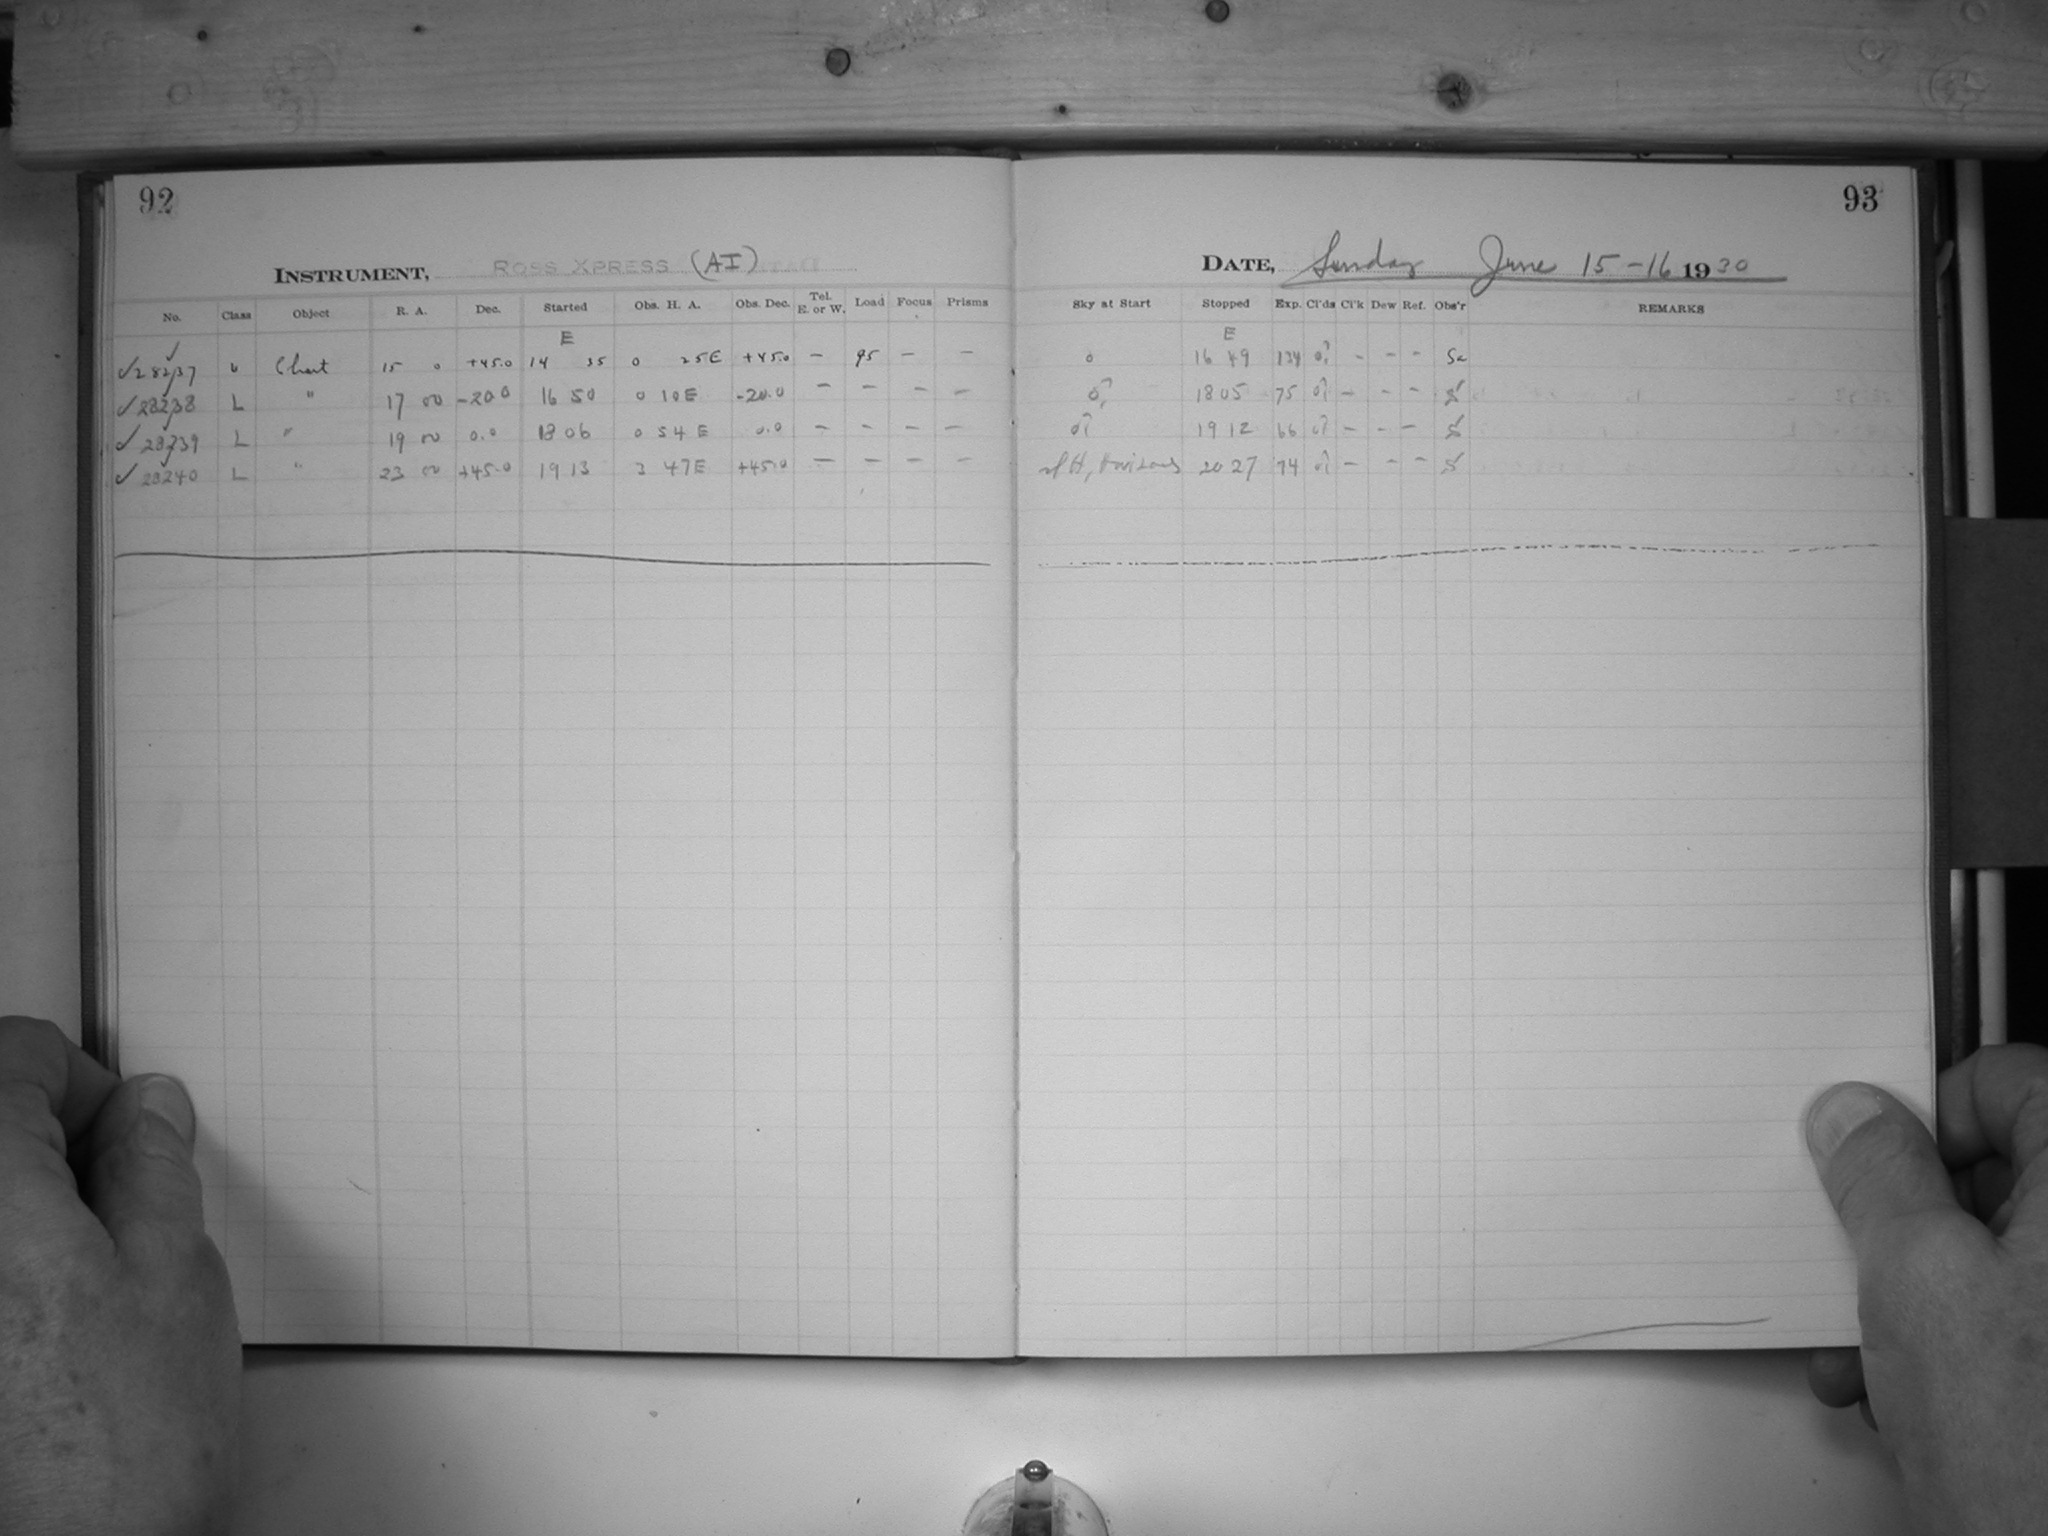 92
INSTRUMENT, ROSS XPRESS (AI)
No. Class Object R. A. Dec. Started Obs. H. A. Obs. Dec. Tel. E. or W. Load Focus Prisms
E
✓28237 L Chart 15 0 +45.0 14 35 0 25E +45.0 — 95 — —
✓28238 L " 17 00 -20.0 16 50 0 10E -20.0 — — — —
✓28239 L " 19 00 0.0 18 06 0 54E 0.0 — — — —
✓28240 L " 23 00 +45.0 19 13 3 47E +45.0 — — — —
93
DATE, Sunday June 15-16 1930
Sky at Start Stopped Exp. Cl'ds Cl'k Dew Ref. Obs'r REMARKS
E
0 16 49 134 0? - - - Sa
0? 18 05 75 0? - - -
0? 19 12 66 0? - - -
20 27 74 0? - - -